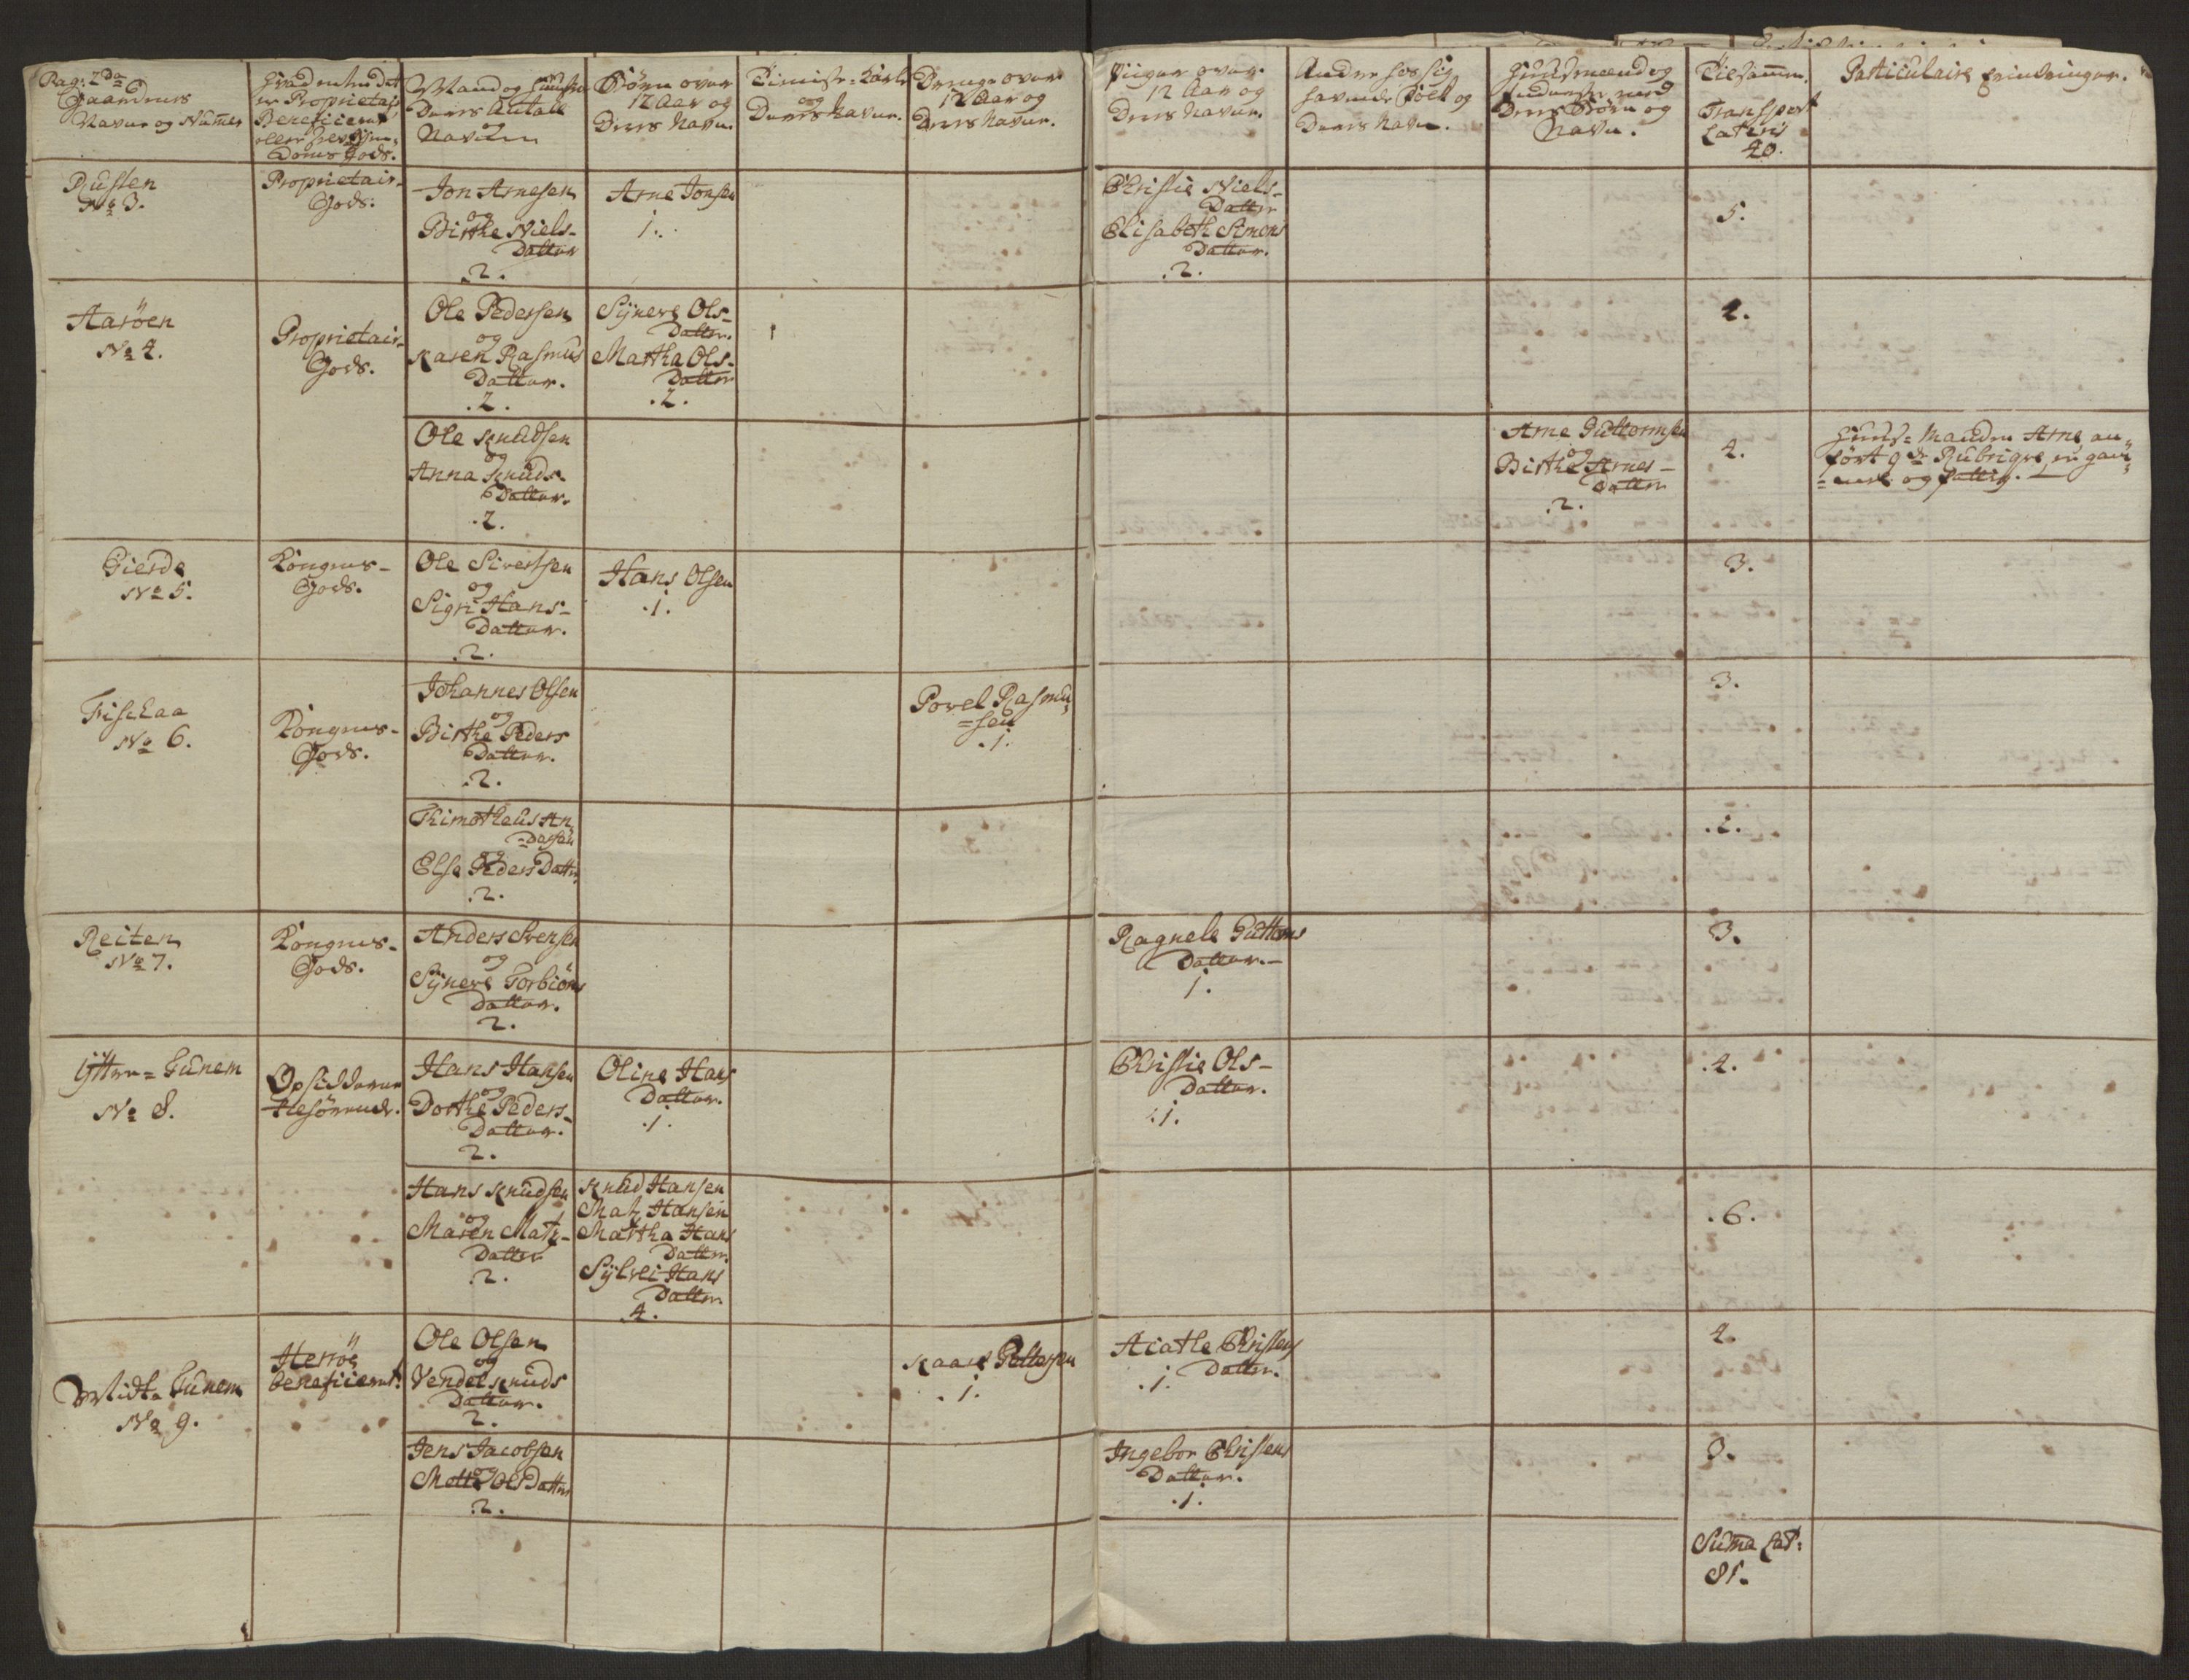 Pag: 2da
Gaardenes
Navne og Numer
er Proprietair
Beneficeret
Gods.
Mand og
Deres Antall
og
Navne
Börn over
12 Aar og
Deres Navne.
Tieniste-Karle
og
Deres Navne.
Drenge over
12 Aar og
Deres Navne.
Piiger over
12 Aar og
Deres Navne.
Andre hos sig
havende Folk og
Deres Navne.
Huusmænd og
Deres Börn og
Navne.
Tilsamm.
Transport
Lateris
40.
Particulaire Erindringer.
Rusten
No 3.
Proprietair-
Gods.
Jon Arnesen
og
Birthe Niels-
Datter
.2.
Arne Jonsen
1.
Christie Niels-
Datter
Elisabeth Simens
Datter.
.2.
5.
Aaröen
No 4.
Proprietair-
Gods.
Ole Pedersen
og
Karen Rasmus
Datter.
.2.
Sÿnere Ols-
Datter.
Martha Ols-
Datter
.2.
4.
Ole Knudsen
og
Anna Knuds-
Datter.
.2.
Arne Guttormsen
og
Birthe Arnes-
Datter
.2.
4.
Huus-Manden Arne an-
fört 9de Rubriqve, er gam-
=mel og fattig.
Gierde
No 5.
Kongens-
Gods.
Ole Sivertsen
og
Sigri Hans-
Datter.
.2.
Hans Olsen
.1.
3.
Fischaa
No 6.
Kongens-
Gods.
Johannes Olsen
og
Birthe Peders
Datter.
.2.
Povel Rasmu-
=sen
.1.
3.
Thimotheus An-
=dersen
og
Else Peders Datter
.2.
.2.
Reiten
No 7.
Kongens-
Gods.
Anders Svensen
og
Sÿnere Torbiöns
Datter.
2.
Ragnele Guttorms
Datter.-
1.
3.
Ÿttre=Tunem
No 8.
Opsidderne
tilhörende.
Hans Hansen
og
Dorthe Peders-
Datter.
2.
Oline Hans
Datter.
.1.
Christie Ols-
Datter.
.1.
.4.
Hans Knudsen
og
Maren Matz-
Datter
.2.
Knud Hansen
Matz Hansen
Martha Hans
Datter.
Sÿlvei Hans
Datter.
.4.
.6.
Midt-Tunem
No 9.
Herröe
beneficeret.
Ole Olsen
og
Vendel Knuds
Datter.
2.
Kaare Pettersen
.1.
Aiathe Christens
Datter.
.1.
4.
Jens Jacobsen
og
Mette Ols Datter
.2.
Ingebor Christens
Datter.
.1.
3.
Suma Lat:
81.